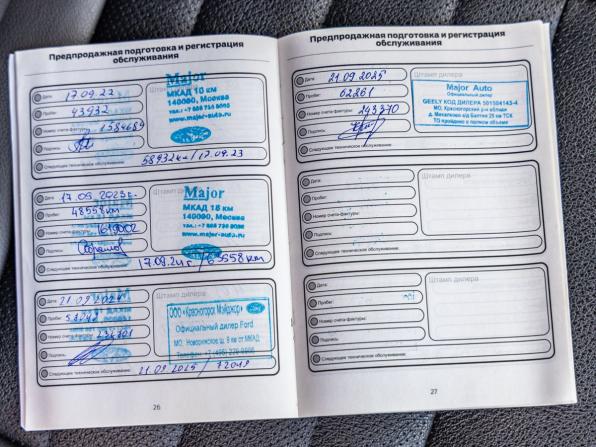 Предпродажная подготовка и регистрация
обслуживания
Дата: 17.09.22
Пробег: 43932
Номер счета-фактуры:
Подпись:
Следующее техническое обслуживание: 58932км / 17.09.23
Major
МКАД 18 км
140090, Москва
www.major-auto.ru
Дата: 17.09.2023г.
Пробег: 48558км
Номер счета-фактуры: 1619002
Подпись:
Следующее техническое обслуживание: 17.09.24г. / 63558км
Штамп дилера
Major
МКАД 18 км
140090, Москва
www.major-auto.ru
Дата: 21.09.2024
Пробег:
Номер счета-фактуры:
Подпись:
Следующее техническое обслуживание: 21.09.2025 / 72048
Штамп дилера
ООО «Красногорск Мэйджор»
Официальный дилер Ford
МО, Новорижское ш, 9 км от МКАД
26
Предпродажная подготовка и регистрация
обслуживания
Дата: 21.09.2025
Пробег: 62261
Номер счета-фактуры: 243370
Подпись:
Следующее техническое обслуживание:
Штамп дилера
Major Auto
Официальный дилер
GEELY КОД ДИЛЕРА 501504143-4
МО, Красногорский р-н вблизи
д. Михалково а/д Балтия 25 км ТСК
ТО пройдено в полном объеме
Дата:
Пробег:
Номер счета-фактуры:
Подпись:
Следующее техническое обслуживание:
Штамп дилера
Дата:
Пробег:
Номер счета-фактуры:
Подпись:
Следующее техническое обслуживание:
Штамп дилера
27